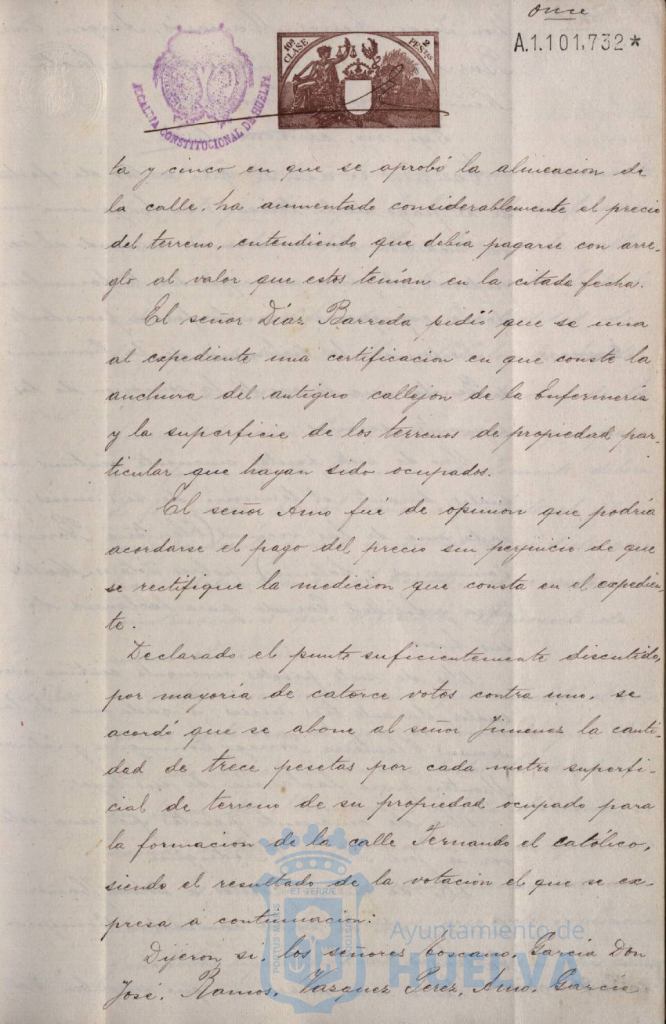 Once
A.1.101,732*
10ª CLASE
2 PESETAS
ALCALDIA CONSTITUCIONAL DE HUELVA
ta y cinco en que se aprobó la alineacion de
la calle, ha aumentado considerablemente el precio
del terreno, entendiendo que debía pagarse con arre-
glo al valor que estos tenían en la citada fecha.
El señor Díaz Barreda pidió que se una
al expediente una certificacion en que conste la
anchura del antiguo callejon de la Enfermería
y la superficie de los terrenos de propiedad par-
ticular que hayan sido ocupados.
El señor Amo fué de opinion que podría
acordarse el pago del precio sin perjuicio de que
se rectifique la medicion que consta en el expedien-
te.
Declarado el punto suficientemente discutido,
por mayoría de catorce votos contra uno, se
acordó que se abone al señor Jimenez la canti-
dad de trece pesetas por cada metro superfi-
cial de terreno de su propiedad ocupado para
la formacion de la calle Fernando el Católico,
siendo el resultado de la votacion el que se ex-
presa á continuacion:
Dijeron si, los señores Toscano, García Don
José, Ramos, Vazquez Perez, Amo, García
Ayuntamiento de
HUELVA